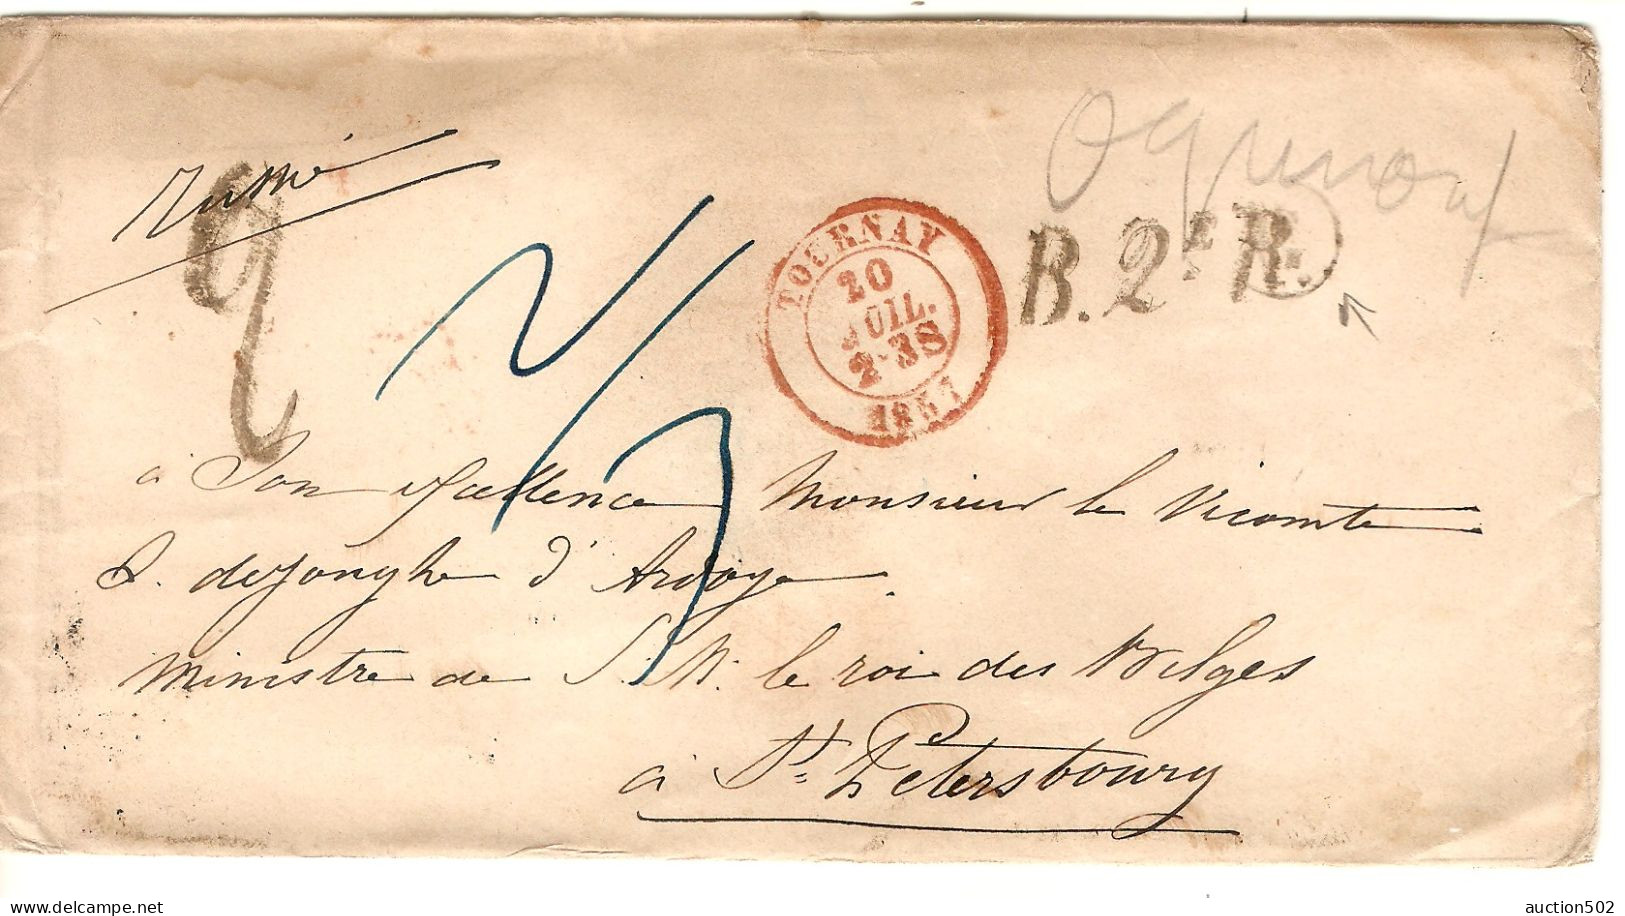 Russie
B. 2ᵉ R.
TOURNAY
20
JUIL.
2-3S
1857
à Son excellence Monsieur le Vicomte
de Jonghe d'Ardoye
Ministre de S. M. le roi des Belges
à St. Petersbourg
www.delcampe.net
auction502